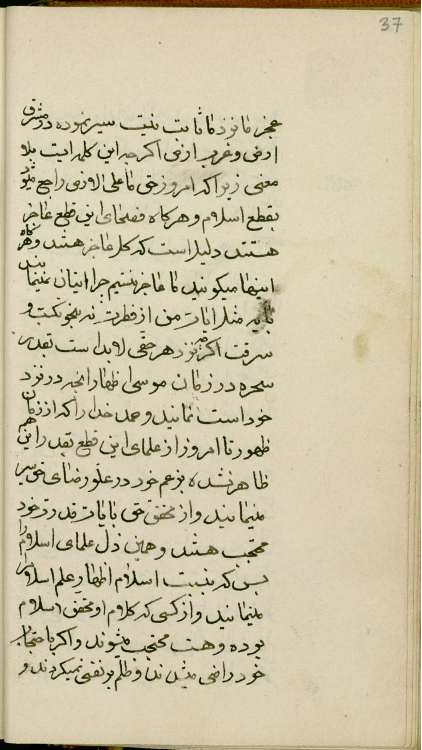 37
عجز ما نزد ما ثابت نیست سیر نموده در مشرق
ارض و غرب ارض اگرچه این کلمه ایست بلا
معنی زیرا که امروز حتی ما علی الارض راجع میشود
بقطع اسلام و هرگاه فصحای این قطع عاجز
هستند دلیل است که کل عاجز هستند و هرگاه
اینها میگویند ما عاجز نیستیم چرا اتیان نمینمایند
بآیه مثل آیات من از فطرت نه بنحو کسب و
سرقت اگرچه نزد هر حقی لابد است بقدر
سحره در زمان موسی اظهار آنچه در نزد
خود است نمایند و حمد خدا را که از زمان
ظهور تا امروز از علمای این قطع بقدر این هم
ظاهر نشده بزعم خود در علو رضای حق سیر
مینمایند و از محقق حق بآیات قدرت خود
محتجب هستند و همین ذل علمای اسلام را
بس که بنسبت اسلام اظهار علم اسلام
مینمایند و از کسی که کلام او محقق اسلام
بوده و هست محتجب میشوند و اگر باحتجاب
خود راضی میشدند و ظلم بر نفسی نمیکردند و